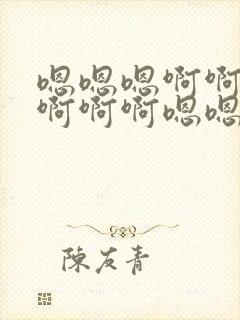 嗯嗯嗯啊啊
啊啊啊嗯嗯
陳友青